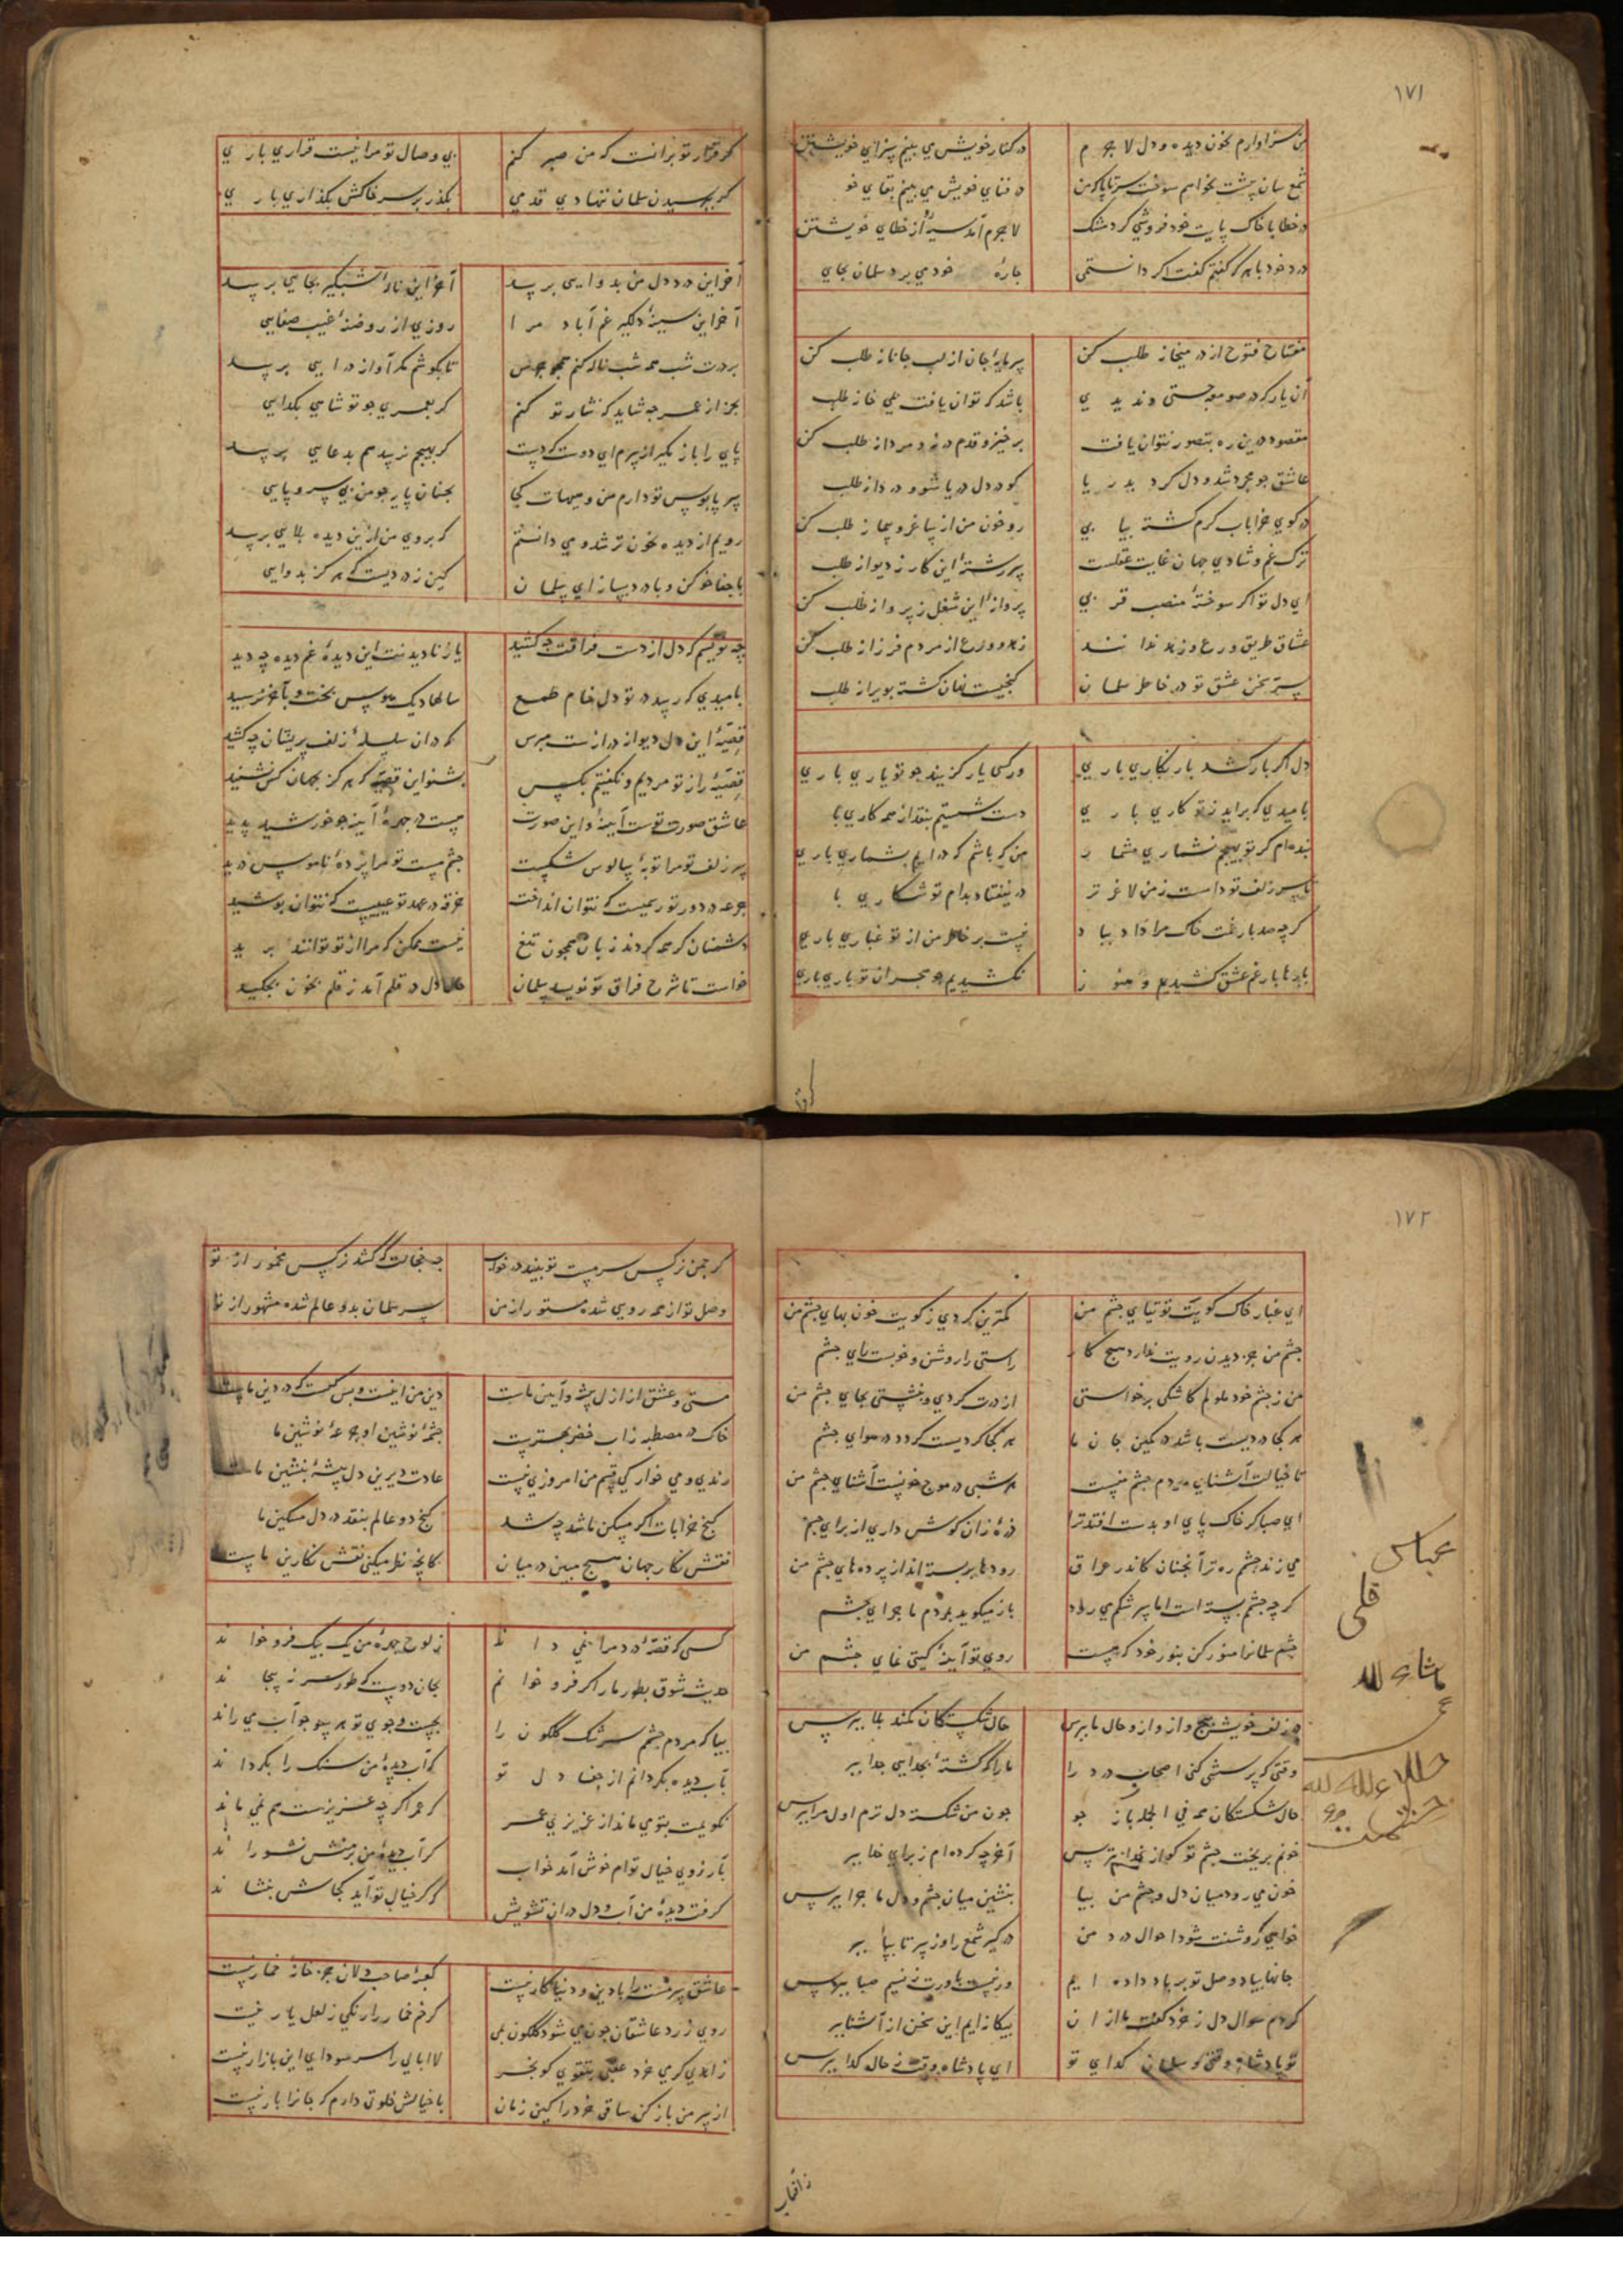 ۱۷۱
من سزاوارم بخون دیده و دل لا جر م در کنار خویش می بینم سزای خویشتن
شمع سان پیشت بخواهم سوخت سر تا پای من در فنای خویش می بینم بقای خو
در خطا با خاک پایت خود فروشی کرد مشک لاجرم آمد سیه از خطای خویشتن
درد خود با هر که گفتم گفت اگر دانستمی چاره خودمی برد سلمان بجای
مفتاح فتوح از در میخانه طلب کن سرمایه جان از لب جانانه طلب کن
آن یار که در صومعه جستی و ندید ی باشد که توان یافت می خانه طلب
مقصود درین ره بتصور نتوان یافت برخیز و قدم در نه و مردانه طلب کن
عاشق چو مجرد شد و دل کرد بدر یا کو در دل دریا شو و دردانه طلب
در کوی خرابات کرم کشته بیا بی رو خون من از ساغر و پیمانه طلب کن
ترک غم و شادی جهان غایت عقلست سررشته این کار ز دیوانه طلب
ای دل تو اکر سوخته منصب قر بی پروانه این شغل ز پروانه طلب کن
عشاق طریق ورع و زهد ندا نند زهد و ورع از مردم فرزانه طلب کن
سر سخن عشق تو در خاطر سلما ن کنجیست نهان کشته بویرانه طلب
دل اکر بار کشد بار نکاری باری ور کسی یار کزیند چو تو یاری باری
بامیدی که براید ز تو کاری با ر ی دست شستیم بنقد از همه کاری با
بنده ام کر تو بهیچم نشماری مشما ر من که باشم که در ایم بشماری باری
با سر زلف تو دامست ز من لاغر تر در نیفتاد بدام تو شکا ر ی با
کر چه صد بار غمت خاک مرا داد ببا د نیست بر خاطر من از تو غباری باری
بارها بار غم عشق کشیدیم و هنو ز نکشیدیم چو هجران تو باری باری
کر قرار تو برانست که من صبر کنم بی وصال تو مرا نیست قراری بار ی
کر بپرسیدن سلمان ننهادی قدمی بکذر بر سر خاکش بکذاری با ر ی
آخر این درد دل من بدوایی برسد آخر این ناله شبکیر بجایی برسد
آخر این سینه دلکیر غم آباد مر ا روزی از روضه غیب صفایی
بر درت شب همه شب ناله کنم همچو جرس تا بکوشم مکر آواز درایی برسد
بجز از عمر چه شاید که نثار تو کنم کر بعمری چو تو شاهی بکدایی
پای را باز مکیر از سرم ای دوست که دست کر بهیچم نرسد هم بدعایی برسد
سر پابوس تو دارم من و هیهات کجا بچنان پایه چو من بی سر و پایی
رویم از دیده بخون تر شد و می دانستم که بروی من ازین دیده بلایی برسد
با جفا خو کن و با درد بساز ای سلما ن کین نه دردیست که هرکز بدوایی
چه نویسم که دل از دست فراقت چه کشید یا ز نادیدنت این دیده غم دیده چه دید
بامیدی که رسد در تو دل خام طمع سالها دیک هوس پخت و بآخر نرسید
قصه این دل دیوانه درازست مپرس که در ان سلسله زلف پریشان چه کشید
قصه راز تو مردیم و نکفتیم بکس بشنو این قصه که هرکز بجهان کس نشنید
عاشق صورت توست آینه و این صورت هست در چهره آینه چو خورشید پدید
سر زلف تو مرا توبه سالوس شکست چشم مست تو مرا پرده ناموس درید
جرعه در دور تو رسمیست که نتوان انداخت خرقه در عهد تو عیبیست که نتوان پوشید
دشمنان کر همه کردند زبان همچون تیغ نیست ممکن که مرا از تو توانند بر ید
خواست تا شرح فراق تو نویسد سلمان حال دل در قلم آمد ز قلم خون بچکید
۱۷۲
ای غبار خاک کویت توتیای چشم من کمترین کردی ز کویت خون بهای چشم من
چشم من جز دیدن رویت ندارد هیچ کا ر راستی را روشن و خوبست رای چشم
من ز چشم خود ملولم کاشکی برخواستی از درت کردی و بنشستی بجای چشم من
هر کجا دردیست باشد در کمین جان ما هر کجا کردیست کردد در هوای چشم
تا خیالت آشنای مردم چشم منست هر شبی در موج خونست آشنای چشم من
ای صبا کر خاک پای او بدست افتد ترا ذره زان کوش داری از برای چشم
می زند چشم ره ترا آنچنان کاندر عرا ق رودها بر بسته اند از پرده های چشم من
کر چه چشم بسته است اما سر شکم می رود باز میکوید بمردم ماجرای چشم
چشم سلمانرا منور کن بنور خود که هست روی تو آینه کیتی نمای چشم من
در زلف خویش پیچ و از و حال ما بپرس حال شکستکان کمند بلا بپرس
وقتی که پرسشی کنی اصحاب درد را ما را که کشته بجدایی جدا بپر
حال شکستکان همه فی الجمله باز جو چون من شکسته دل ترم اول مرا بپرس
خونم بریخت چشم تو کو از خدا بترس آخر چه کرده ام ز برای خدا بپر
خون می رود میان دل و چشم من بیا بنشین میان چشم و دل ماجرا بپرس
خواهی که روشنت شود احوال درد من در کیر شمع را و ز سر تا بپا بپر
جانها بباد وصل تو بر باد داده ا یم ور نیست باورت ز نسیم صبا بپرس
کردم سوال دل ز خرد کفت ما از ا ن بیکانه ایم این سخن از آشنا بپر
تو پادشاه وقتی و سلمان کدای تو ای پادشاه وقت ز حال کدا بپرس
کر چمن نرکس سرمست تو بیند در خواب چه خجالت که کشد نرکس مخمور از تو
وصل تو از همه رویی شده مستور از من سر سلمان بدو عالم شده مشهور از تو
مستی و عشق از ازل پیشه و آیین ماست دین من اینست و بس کیست که در دین ماست
خاک در مصطبه زاب خضر بهترست چشمه نوشین او جرعه نوشین ما
رندی و می خوارکی قسم من امروزی نیست عادت دیرین دل پیشه پیشین ما
کنج خرابات اکر مسکن ما شد چه شد کنج دو عالم بنقد در دل مسکین ما
نقش نکار جهان هیچ مبین در میان کانچه نظر میکنی نقش نکارین ماست
کسی که قصه درد مرا نمی د ا ند ز لوح چهره من یک بیک فرو خوا ند
حدیث شوق بطومار اکر فرو خوا نم بجان دوست که طومار سر نه پیچا ند
بیا که مردم چشم سرشک کلکون را بجست و جوی تو هر سو چو آب می راند
بآب دیده بکردانم از جفا د ل تو که آب دیده من سنک را بکردا ند
نکویمت بتو می ماند از عزیزی عمر که عمر اکر چه عزیزست هم نمی ما ند
بآرزوی خیال توام خوش آمد خواب کر آب دیده من زمنش نشورا ند
کرفت دیده من آب و دل در ان تشویش که کر خیال تو آید کجاش بنشا ند
عاشق سرمست را با دین و دنیا کار نیست کعبه صاحب دلان جز خانه خمار نیست
روی زرد عاشقان چون می شود کلکون بمی کر خم خمار را رنکی ز لعل یار نیست
زاهدی کر می خرد عقبی بتقوی کو بخر لاابالی را سر سودای این بازار نیست
از سر من باز کن ساقی خرد را کین زمان با خیالش خلوتی دارم که جانرا بار نیست
عباس
قلی
ماشاء الله